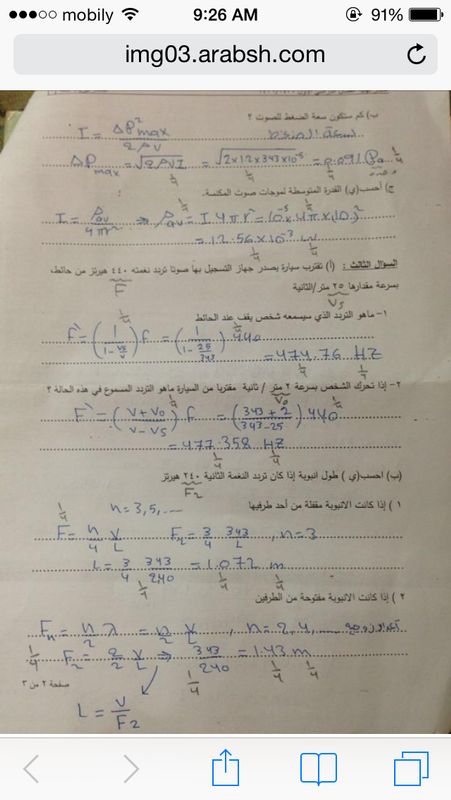 mobily 9:26 AM 91%
img03.arabsh.com
ب) كم ستكون سعة الضغط للصوت ؟
I = ΔP²max / 2ρv
ΔPmax = √2ρVI = √2×1.2×343×10⁻⁵ = 0.091 Pa 1/4
1/4 1/4 1/4
ج) أحسب(ي) القدرة المتوسطة لموجات صوت المكنسة.
I = Pav / 4πr² ⇒ Pav = I 4πr² = 10⁻⁵ × 4π × (10)²
= 12.56 × 10⁻³ W
1/4 1/4
السؤال الثالث : (أ) تقترب سيارة يصدر جهاز التسجيل بها صوتا تردد نغمته ٤٤٠ هيرتز من حائط،
F
بسرعة مقدارها ٢٥ متر/الثانية
Vs
١- ماهو التردد الذي سيسمعه شخص يقف عند الحائط
1/4 1/4
F` = (1 / 1 - vs/v) f = (1 / 1 - 25/343) 440
= 474.76 HZ
1/4 1/4
٢- إذا تحرك الشخص بسرعة ٢ متر / ثانية مقتربا من السيارة ماهو التردد المسموع في هذه الحالة ؟
1/4 Vo 1/4
F` = (V+Vo / V-Vs) f = (343+2 / 343-25) 440
= 477.358 HZ
1/4 1/4
(ب) احسب(ي) طول انبوبة إذا كان تردد النغمة الثانية ٢٤٠ هيرتز
F2
١ ) إذا كانت الانبوبة مقفلة من أحد طرفيها n = 3, 5, ....
1/4
F = n/4 V/L F2 = 3/4 343/L , n = 3
L = 3/4 343/240 = 1.072 m
1/4 1/4 1/4
٢ ) إذا كانت الانبوبة مفتوحة من الطرفين
Fn = n/2 λ = n/2 V/L , n = 2, 4, .... أعداد زوجية
1/4 F2 = 2/2 V/L ⇒ 343/240 = 1.43 m
1/4 1/4 1/4
صفحة ٢ من ٣
L = V/F2